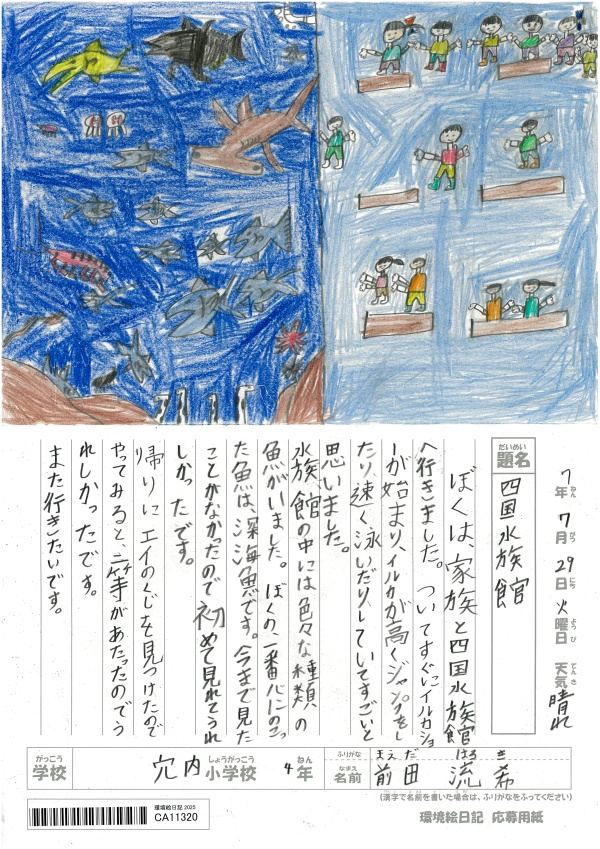 7年 7月 29日 火曜日 天気 晴れ
ねん がつ にち ようび てんき
だいめい
題名
四国水族館
ぼくは、家族と四国水族館
へ行きました。ついてすぐにイルカショ
ーが始まり、イルカが高くジャンプをし
たり、速く泳いだりしていてすごいと
思いました。
水族館の中には色々な種類の
魚がいました。ぼくの一番心にのこっ
た魚は、深海魚です。今まで見た
ことがなかったので初めて見れてうれ
しかったです。
帰りにエイのくじを見つけたので
やってみると、二等があたったのでう
れしかったです。
また行きたいです。
がっこう しょうがっこう ねん
学校 穴内 小学校 4年
ふりがな まえ だ はる き
なまえ
名前 前田 流希
(漢字で名前を書いた場合は、ふりがなをふってください)
環境絵日記 応募用紙
環境絵日記 2025
CA11320